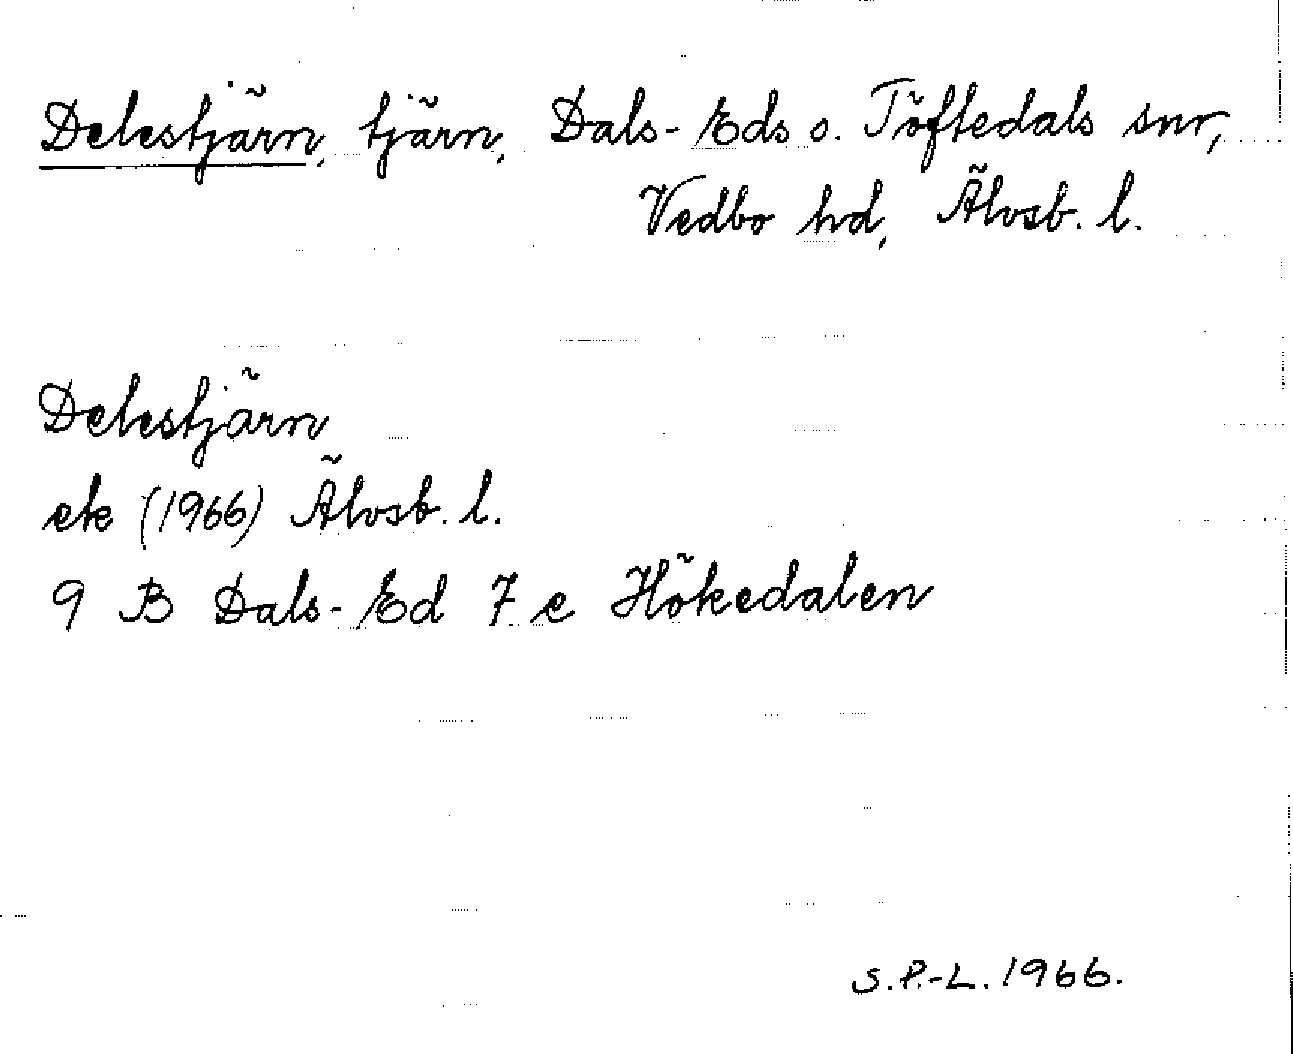 Delestjärn, tjärn, Dals-Eds o. Töftedals snr,
Vedbo hd, Älvsb. l.
Delestjärn
ek (1966) Älvsb. l.
9 B Dals-Ed 7 e Hökedalen
S.P.-L. 1966.